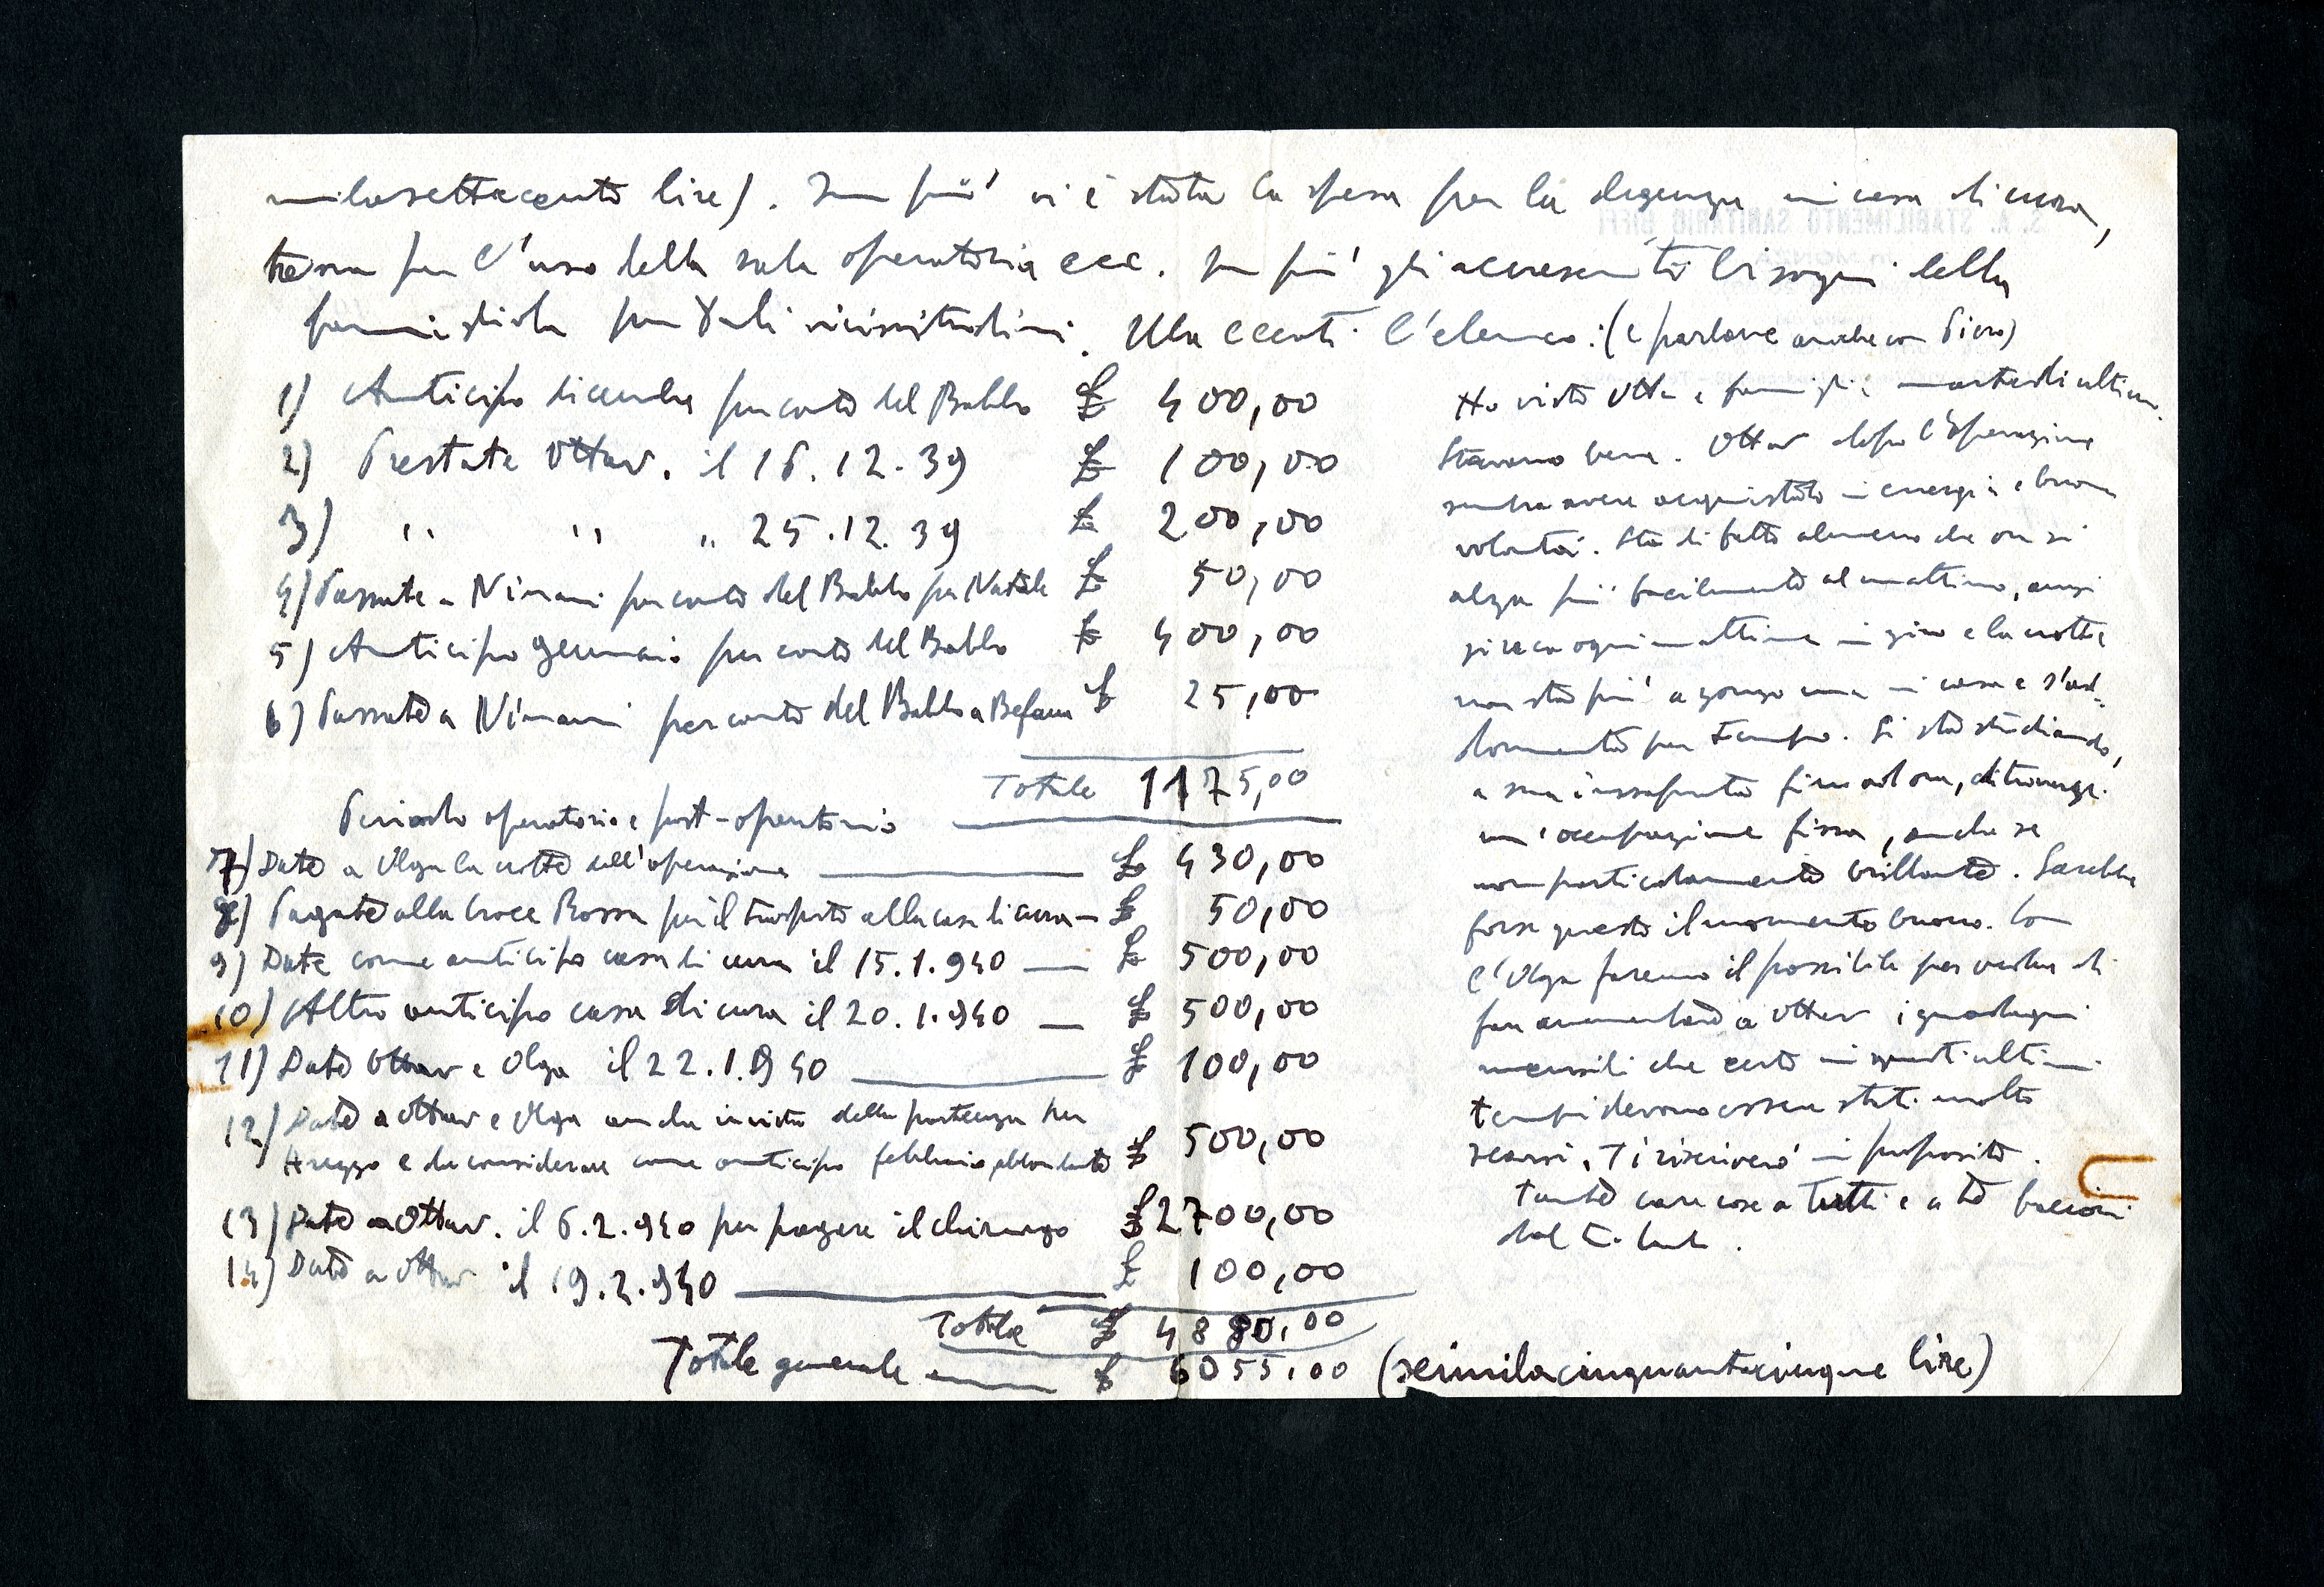 milasettecento lire). In più vi è stata la spesa per la degenza in casa di cura,
tassa per l'uso della sala operatoria ecc. In più gli accresciuti bisogni della
famigliola per tali vicissitudini. Ma eccoti l'elenco: (e parlane anche con Piero)
1) Anticipo dicembre per conto del Babbo £ 400,00
2) Prestate Ottav. il 16.12.39 £ 100,00
3) " " " 25.12.39 £ 200,00
4) Passate a Ninani per conto del Babbo per Natale £ 50,00
5) Anticipo Gennaio per conto del Babbo £ 400,00
6) Passate a Ninani per conto del Babbo a Befana £ 25,00
Totale 1175,00
Periodo operatorio e post-operatorio
7) Date a Olga la notte dell'operazione £ 430,00
8) Pagate alla Croce Rossa per il trasporto alla casa di cura £ 50,00
9) Date come anticipo casa di cura il 15.1.940 £ 500,00
10) Altro anticipo casa di cura il 20.1.940 £ 500,00
11) Date Ottav e Olga il 22.1.940 £ 100,00
12) Date a Ottav e Olga anche in vista della partenza per
Arezzo e da considerare come anticipo febbraio abbondante £ 500,00
13) Date a Ottav. il 6.2.940 per pagare il chirurgo £ 2700,00
14) Date a Ottav il 19.2.940 £ 100,00
Totale £ 4880,00
Totale generale £ 6055,00 (seimilacinquantacinque lire)
Ho visto Otta e famiglia martedì ultimo.
Stavano bene. Ottav dopo l'operazione
sembra avere acquistato in energia e buona
volontà. Sta di fatto almeno che ora si
alza più facilmente al mattino, anzi
si reca ogni mattina in giro e la notte
non sta più a zonzo ma in casa e s'ad-
dormenta per tempo. Si sta studiando,
a sua insaputa fino ad ora, di trovargli
un'occupazione fissa, anche se
non particolarmente brillante. Sarebbe
forse questo il momento buono. Con
l'Olga faremo il possibile per veder di
far aumentare a Ottav i guadagni
mensili che certo in questi ultimi
tempi devono essere stati molto
scarsi. Ti riscriverò in proposito.
Tante care cose a tutti e a te bacioni
dal